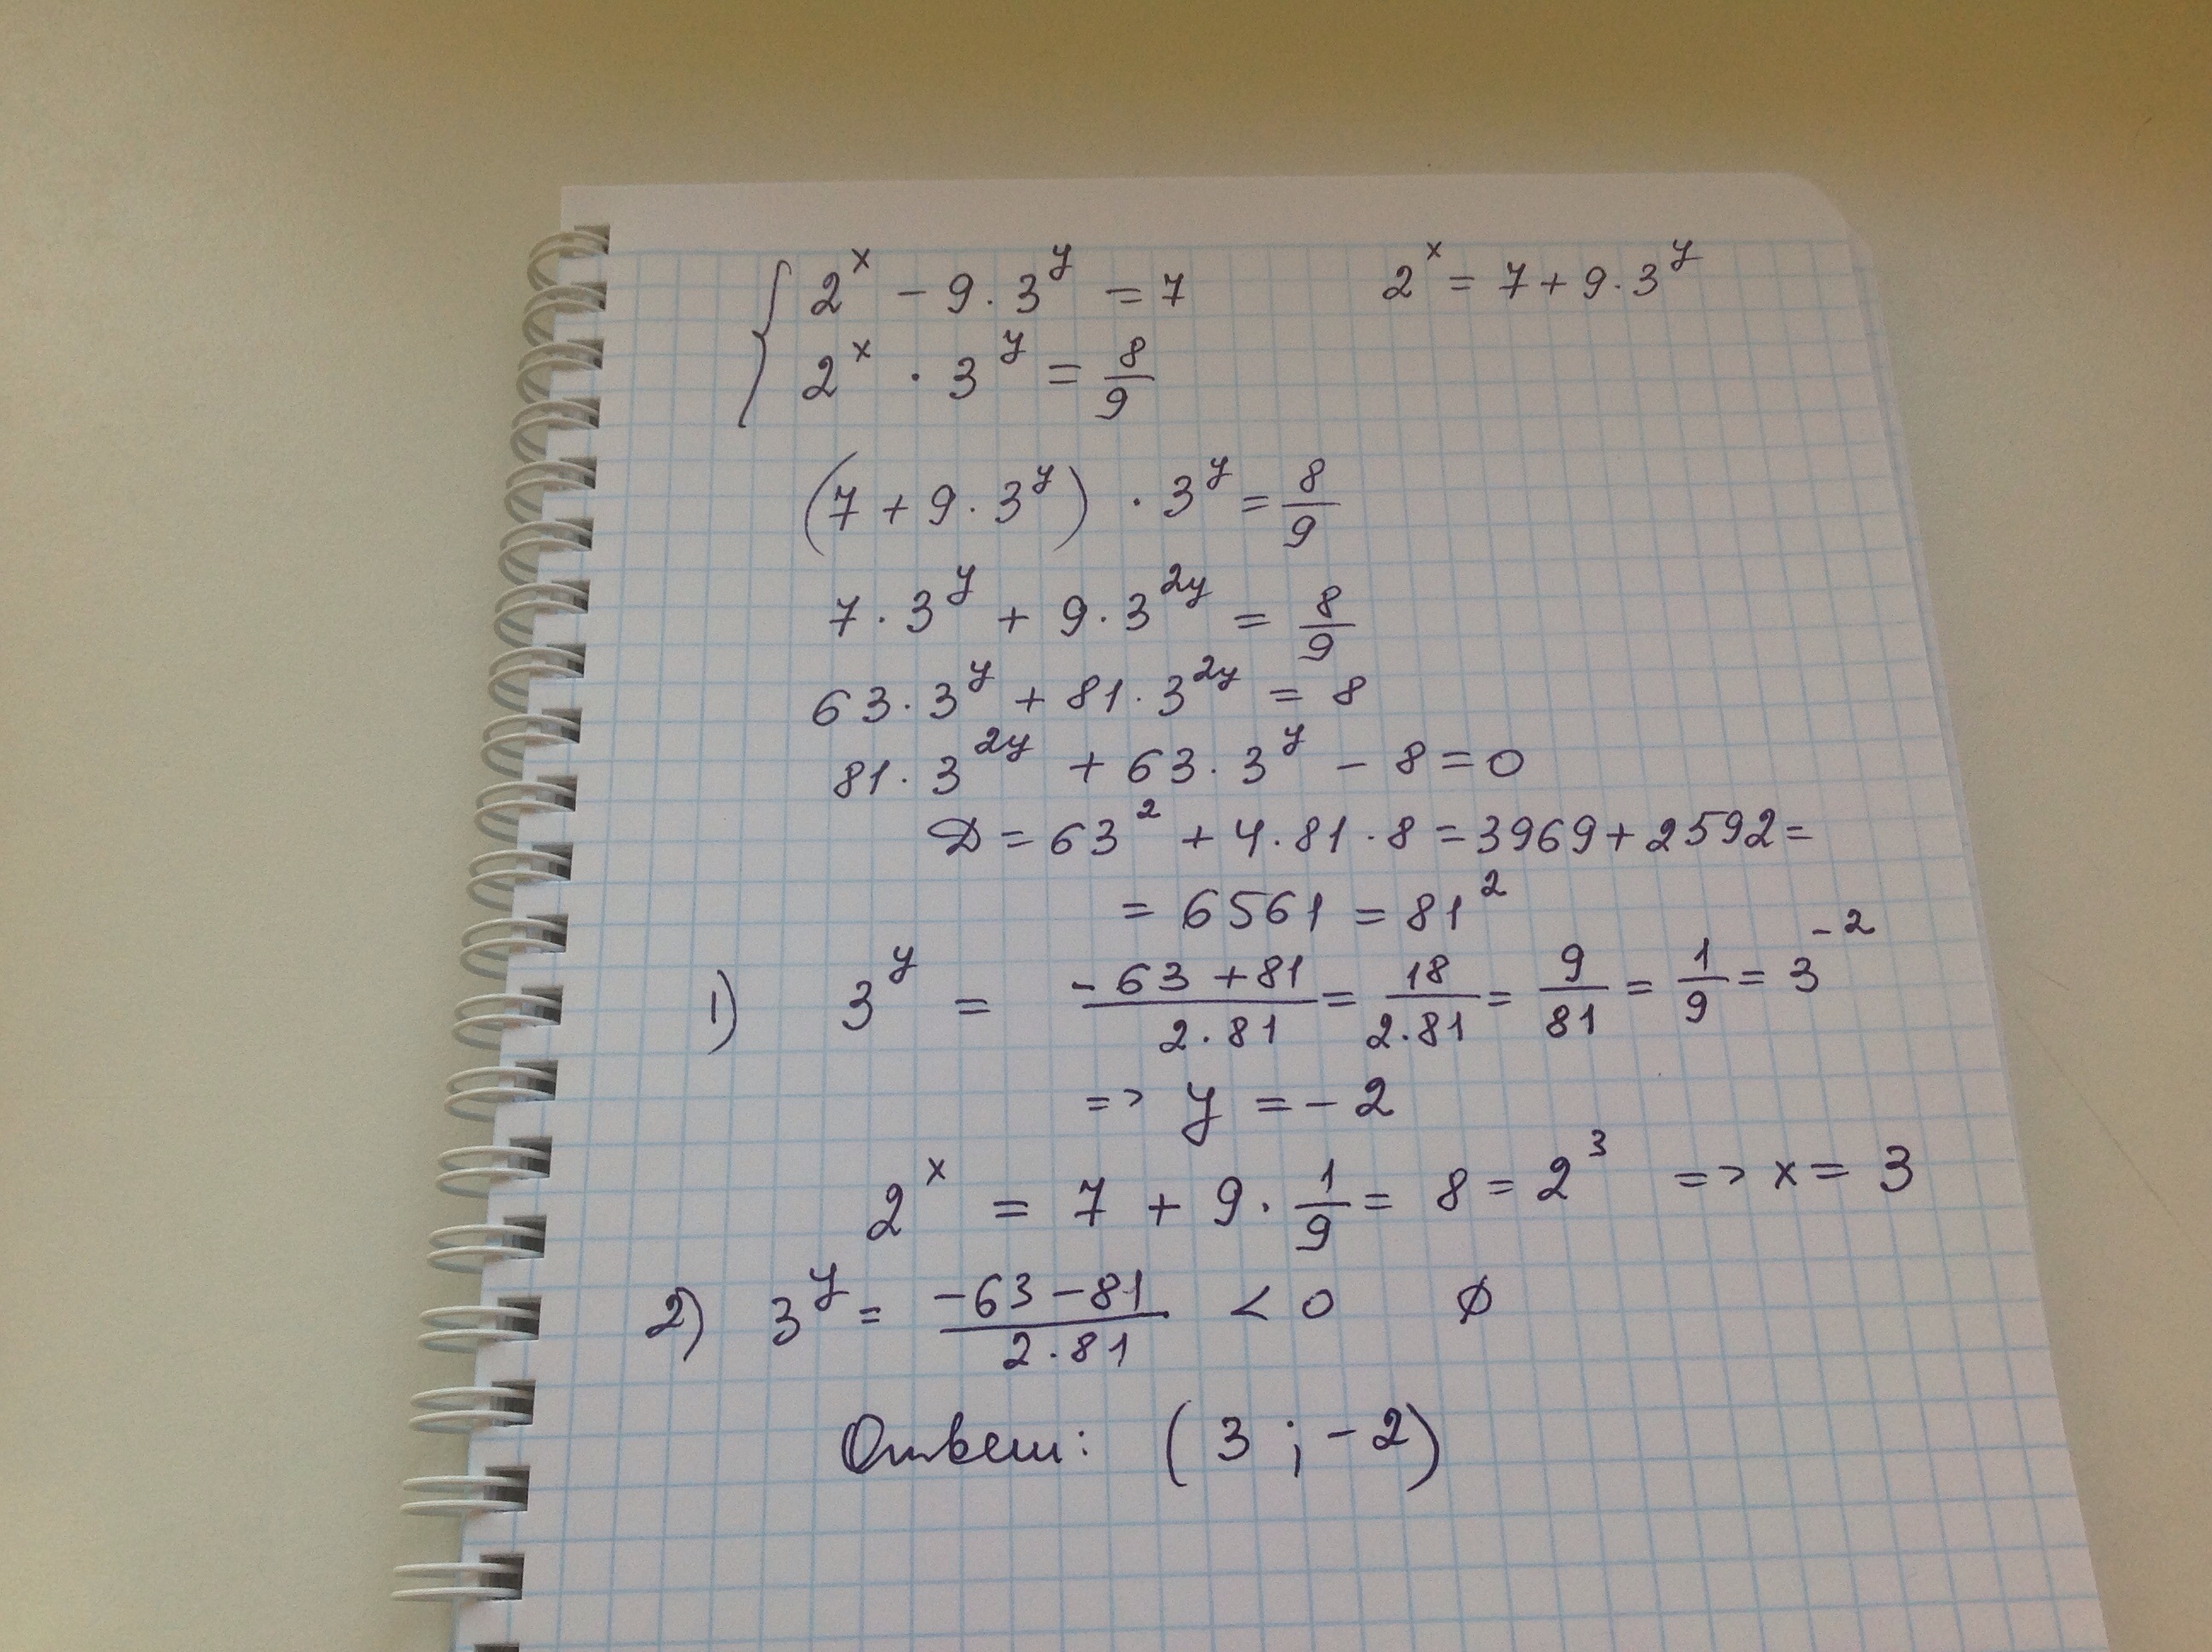 { 2^x - 9 · 3^y = 7    2^x = 7 + 9 · 3^y
2^x · 3^y = 8/9
(7 + 9 · 3^y) · 3^y = 8/9
7 · 3^y + 9 · 3^2y = 8/9
63 · 3^y + 81 · 3^2y = 8
81 · 3^2y + 63 · 3^y - 8 = 0
D = 63^2 + 4 · 81 · 8 = 3969 + 2592 =
= 6561 = 81^2
1) 3^y = (-63 + 81)/(2 · 81) = 18/(2 · 81) = 9/81 = 1/9 = 3^-2
=> y = -2
2^x = 7 + 9 · 1/9 = 8 = 2^3 => x = 3
2) 3^y = (-63 - 81)/(2 · 81) < 0 ∅
Ответ: (3 ; -2)